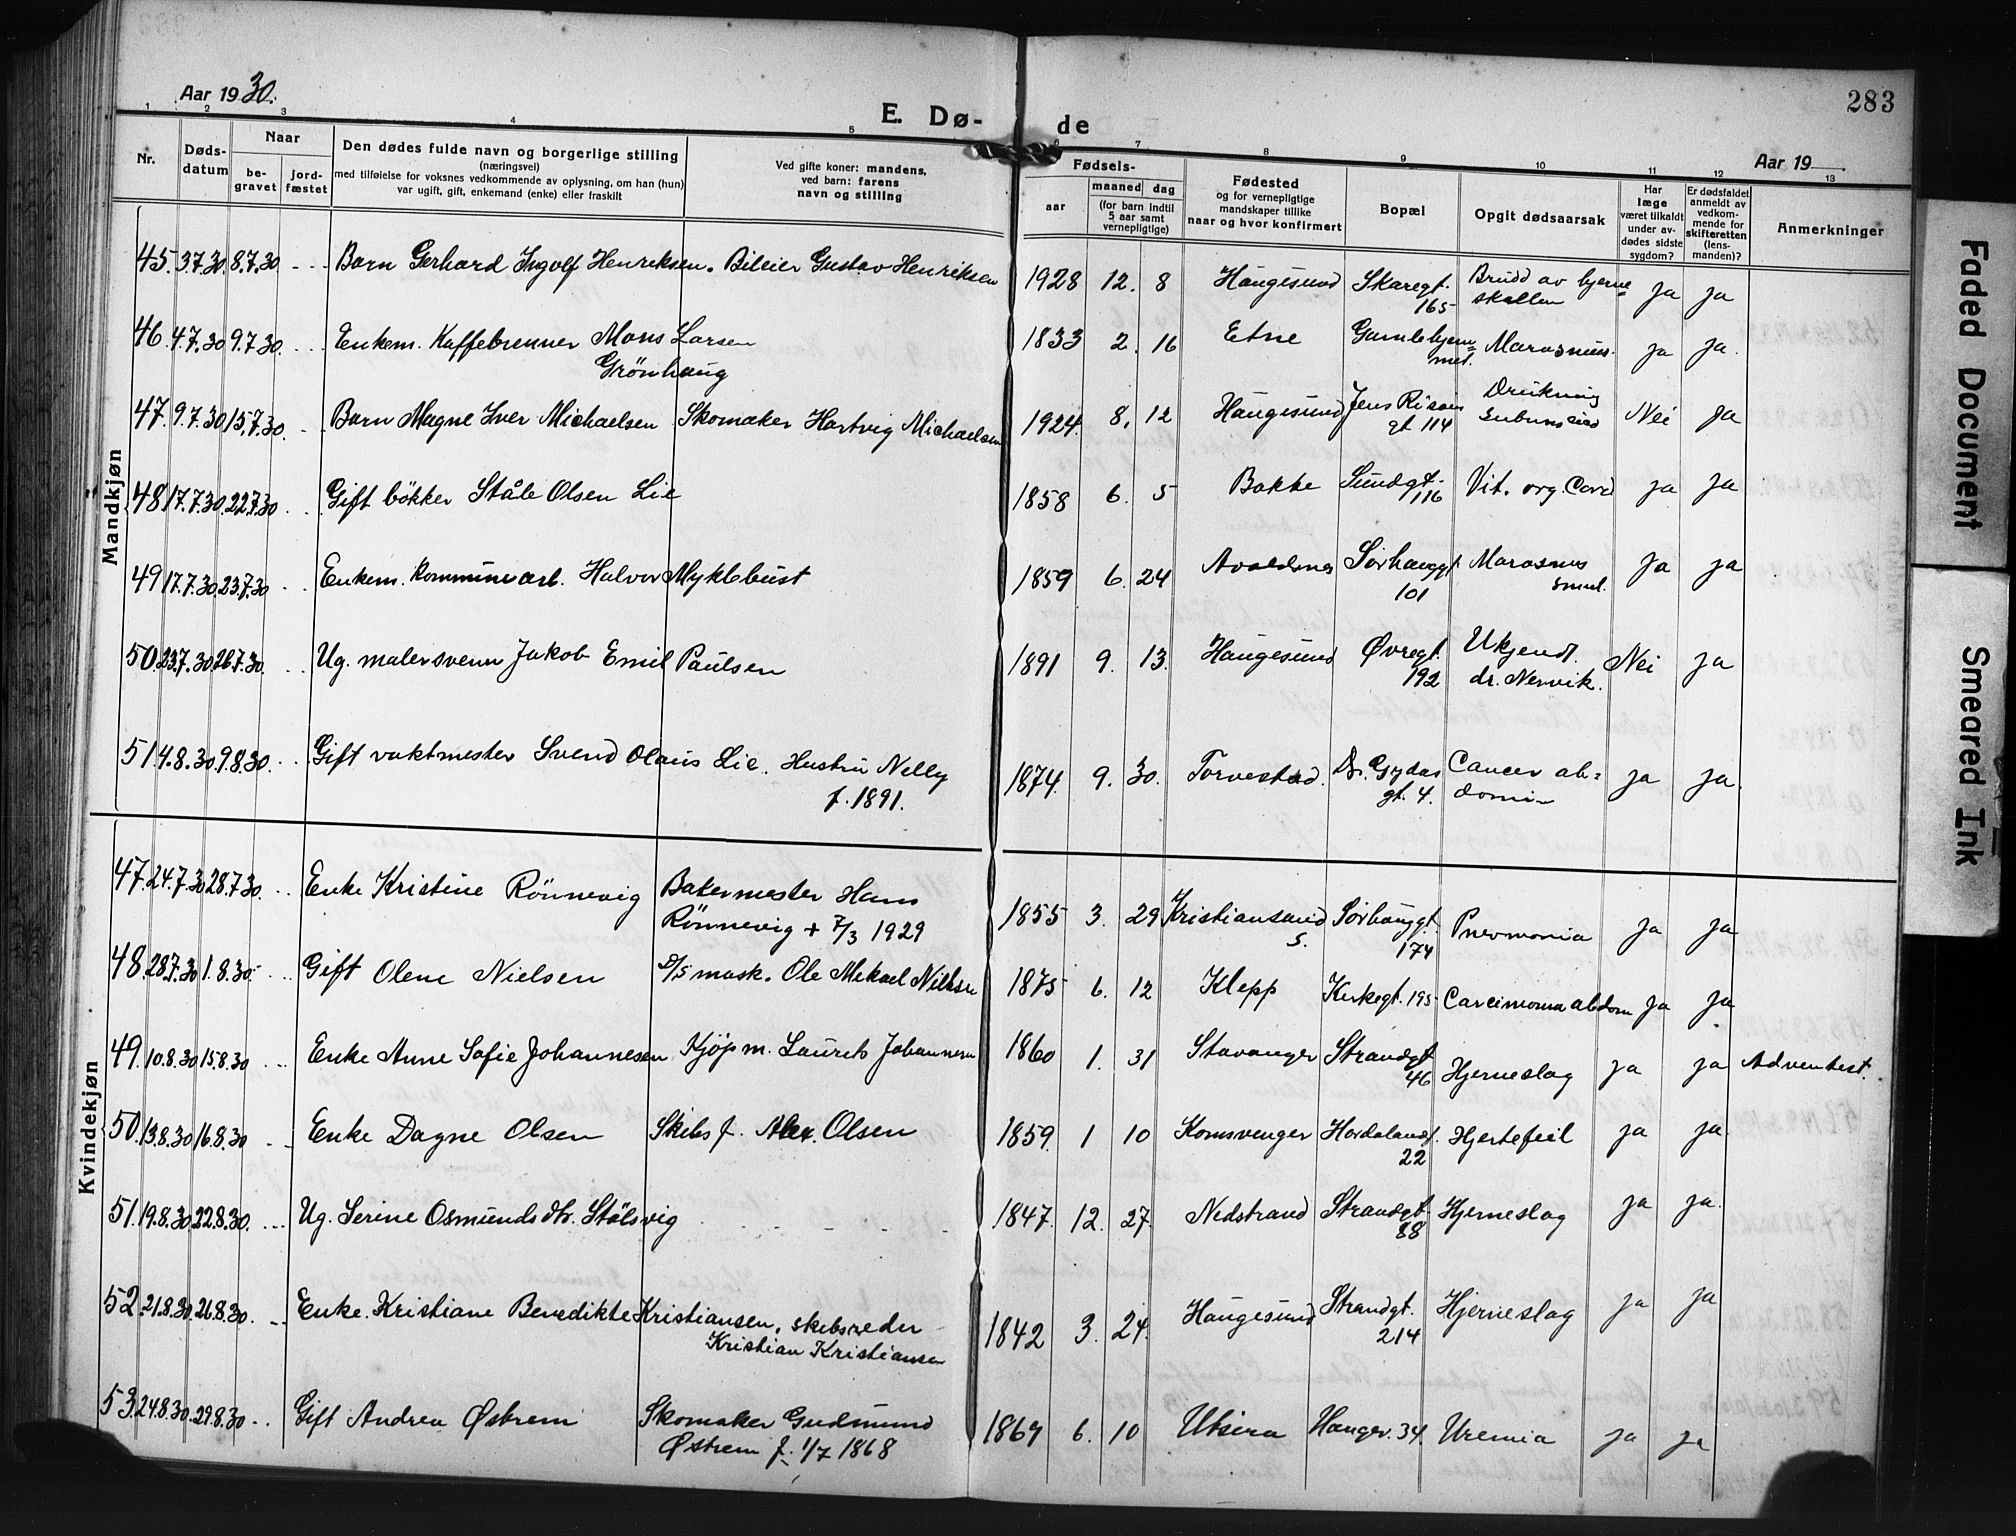 283
Aar 1930.
E. Dø- de
Aar 19
1 2 3 4 5 6 7 8 9 10 11 12 13
Nr.
Døds-
datum
Naar
be-
gravet
jord-
fæstet
Den dødes fulde navn og borgerlige stilling
(næringsvei)
med tilføielse for voksnes vedkommende av oplysning, om han (hun)
var ugift, gift, enkemand (enke) eller fraskilt
Ved gifte koner: mandens,
ved barn: farens
navn og stilling
Fødsels-
aar
maaned
dag
(for barn indtil
5 aar samt
vernepligtige)
Fødested
og for vernepligtige
mandskaper tillike
naar og hvor konfirmert
Bopæl
Opgit dødsaarsak
Har
læge
været tilkaldt
under av-
dødes sidste
sygdom?
Er dødsfaldet
anmeldt av
vedkom-
mende for
skifteretten
(lens-
manden)?
Anmerkninger
Mandkjøn
45. 3.7.30. 8.7.30. Barn Gerhard Ingolf Henriksen. Bileier Gustav Henriksen 1928 12. 8 Haugesund Skaregt. 165 Brudd av hjerne=
skallen ja ja
46. 4.7.30 9.7.30. Enkem. Kaffebrenner Mons Larsen
Grönhaug 1833 2. 16 Etne Gamlehjem=
met. Marasmus. ja ja.
47. 9.7.30 15.7.30. Barn Magne Iver Michaelsen Skomaker Hartvig Michaelsen 1924. 8. 12 Haugesund Jens Risøis
gt 114 Drukning Nei ja
48 17.7.30. 22.7.30 Gift bökker Ståle Olsen Lie 1858 6. 5 Bokke Sundgt. 116 Vit. org. Cord ja ja
49 17.7.30. 23.7.30 Enkem. kommunearb. Halvor Myklebust 1859 6. 24 Avaldsnes Sørhauggt
101 Marasmus
senil. ja ja
50. 23.7.30 26.7.30. Ug. malersvenn Jakob Emil Paulsen 1891 9. 13. Haugesund Øvregt.
192 Ukjendt.
dr. Nervik. Nei ja
51. 4.8.30. 9.8.30. Gift vaktmester Svend Olaus Lie. Hustru Nelly
f. 1891. 1874. 9. 30. Torvestad. Dr. Gydas
gt. 4. Cancer ab=
domin ja ja.
Kvindekjøn
47. 24.7.30 28.7.30. Enke Kristine Rönnevig Bakermester Hans
Rönnevig + 7/3 1929 1855 3. 29 Kristiansand
S. Sørhauggt.
174 Pnevmonia ja ja
48. 28.7.30 1.8.30. Gift Olene Nielsen D/S mask. Ole Mikael Nielsen 1875 6. 12 Klepp Kirkegt. 195 Carcimoma abdom ja ja
49. 10.8.30 15.8.30 Enke Anne Sofie Johannesen Kjøpm. Laurits Johannesen 1860 1. 31 Stavanger Strandgt
46 Hjerneslag ja ja Adventist.
50. 13.8.30 16.8.30 Enke Dagne Olsen Skibsf. Alex. Olsen 1859. 1 10 Konsvenger Hordalandgt.
22 Hjertefeil ja ja.
51. 19.8.30. 22.8.30. Ug. Serine Osmundsdtr. Stölsvig 1847. 12. 27. Nedstrand Strandgt.
88 Hjerneslag ja ja.
52. 21.8.30. 26.8.30. Enke. Kristiane Benedikte Kristiansen, skibsreder
Kristian Kristiansen 1842 3. 24. Haugesund Strandgt.
214 Hjerneslag ja ja
53. 24.8.30. 29.8.30 Gift Andrea Østrem Skomaker Gudmund
Østrem f. 1/7 1868 1867 6. 10 Utsira Haugev. 34. Uremia ja ja
Faded Document
Smeared Ink